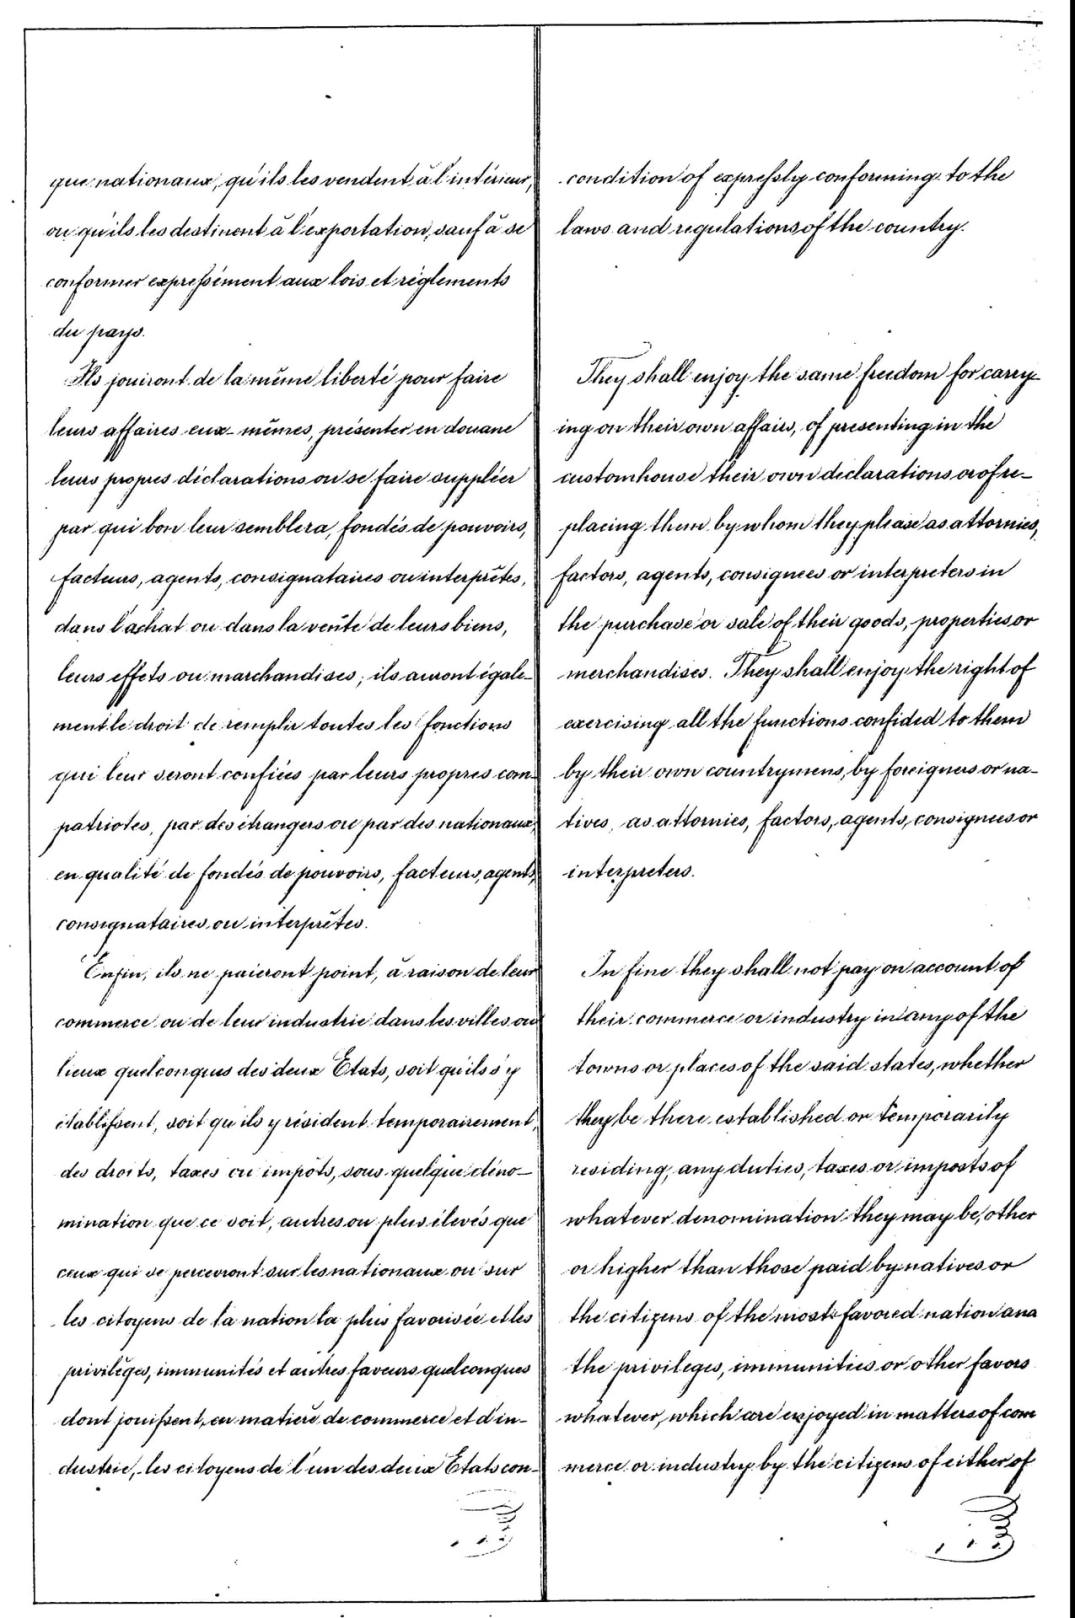 que nationaux, qu'ils les vendent à l'intérieur,
ou qu'ils les destinent à l'exportation, sauf à se
conformer expressément aux lois et règlements
du pays.
Ils jouiront de la même liberté pour faire
leurs affaires eux-mêmes, présenter en douane
leurs propres déclarations ou se faire suppléer
par qui bon leur semblera, fondés de pouvoirs,
facteurs, agents, consignataires ou interprêtes,
dans l'achat ou dans la vente de leurs biens,
leurs effets ou marchandises; ils auront égale-
ment le droit de remplir toutes les fonctions
qui leur seront confiées par leurs propres com-
patriotes, par des étrangers ou par des nationaux,
en qualité de fondés de pouvoirs, facteurs, agents,
consignataires ou interprêtes.
Enfin, ils ne paieront point, à raison de leur
commerce ou de leur industrie dans les villes ou
lieux quelconques des deux Etats, soit qu'ils s'y
établissent, soit qu'ils y résident temporairement,
des droits, taxes ou impôts, sous quelque déno-
mination que ce soit, autres ou plus élevés que
ceux qui se percevront sur les nationaux ou sur
les citoyens de la nation la plus favorisée et les
privilèges, immunités et autres faveurs quelconques
dont jouissent, en matière de commerce et d'in-
dustrie, les citoyens de l'un des deux Etats con-
condition of expressly conforming to the
laws and regulations of the country.
They shall enjoy the same freedom for carry-
ing on their own affairs, of presenting in the
customhouse their own declarations or of re-
placing them by whom they please as attornies,
factors, agents, consignees or interpreters in
the purchase or sale of their goods, properties or
merchandises. They shall enjoy the right of
exercising all the functions confided to them
by their own countrymens, by foreigners or na-
tives, as attornies, factors, agents, consignees or
interpreters.
In fine they shall not pay on account of
their commerce or industry in any of the
towns or places of the said states, whether
they be there established or temporarily
residing, any duties, taxes or imposts of
whatever denomination they may be, other
or higher than those paid by natives or
the citizens of the most favored nation and
the privileges, immunities or other favors
whatever, which are enjoyed in matters of com
merce or industry by the citizens of either of